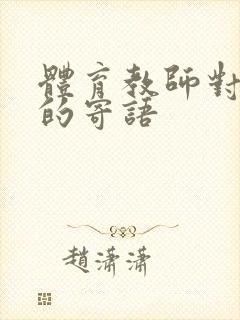 體育教師對
的寄語
趙瀟瀟